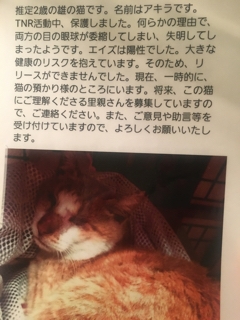 推定2歳の雄の猫です。名前はアキラです。
TNR活動中、保護しました。何らかの理由で、
両方の目の眼球が委縮してしまい、失明してし
まったようです。エイズは陽性でした。大きな
健康のリスクを抱えています。そのため、リ
リースができませんでした。現在、一時的に、
猫の預かり様のところにいます。将来、この猫
にご理解くださる里親さんを募集しています
ので、ご連絡ください。また、ご意見や助言等を
受け付けていますので、よろしくお願いいたし
ます。